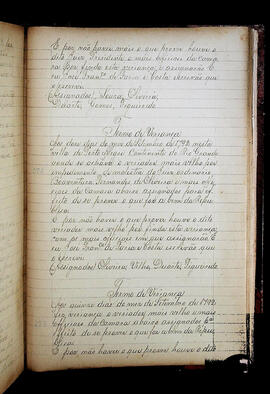 E por não haver mais o que prover houve o
dito Juiz Presidente e mais officiaes da Camara
por finda esta vereança e assignarão E
eu José Franco. de Faria e Costa escrivão que
o escrevi.
(Assignados) Souza, Oliveira,
Duarte, Gomes, Figueiredo.
Termo de Vereança
dias do mez de Setembro de 1792 nesta
villa de
onde se achava o vereador mais velho por
impedimento e molestia do Juiz ordinario,
Fernandes de Oliveira e mais
da Camara abaixo assignados para
effeito de se prover o que for a bem da Republica.
E por não haver o que prover houve o dito
vereador mais velho por finda esta vereança
com os mais officiaes em que assignarão E
eu José Franco. de Faria e Costa escrivão que
o escrevi.
(Assignados) Oliveira, Duarte, Figueiredo
Termo de Vereança
Aos quinze dias do mez de de 1792
em vereança o vereador mais velho e mais
officiaes da Camara abaixo assignados
effeito de se prover o que for a bem da
E por não haver mais o que prover houve o dito